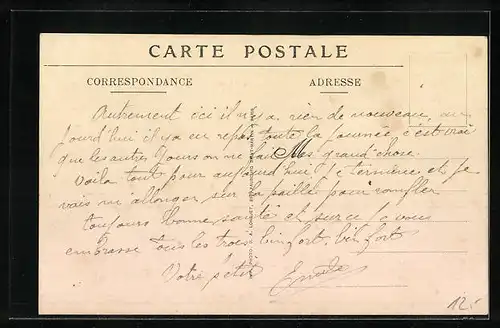 CARTE POSTALE
CORRESPONDANCE
ADRESSE
Autrement ici il n'y a rien de nouveau, au
jourd'hui il y a eu repos toute la journée c'est vrai
que les autres Jours on ne fait pas grand chose.
Voila tout pour aujourd'hui Je termine et je
vais m'allonger sur la paille pour ronfler
toujours bonne santé et sur ce Je vous
embrasse tous les trois bien fort, bien fort
Votre petit
12.-